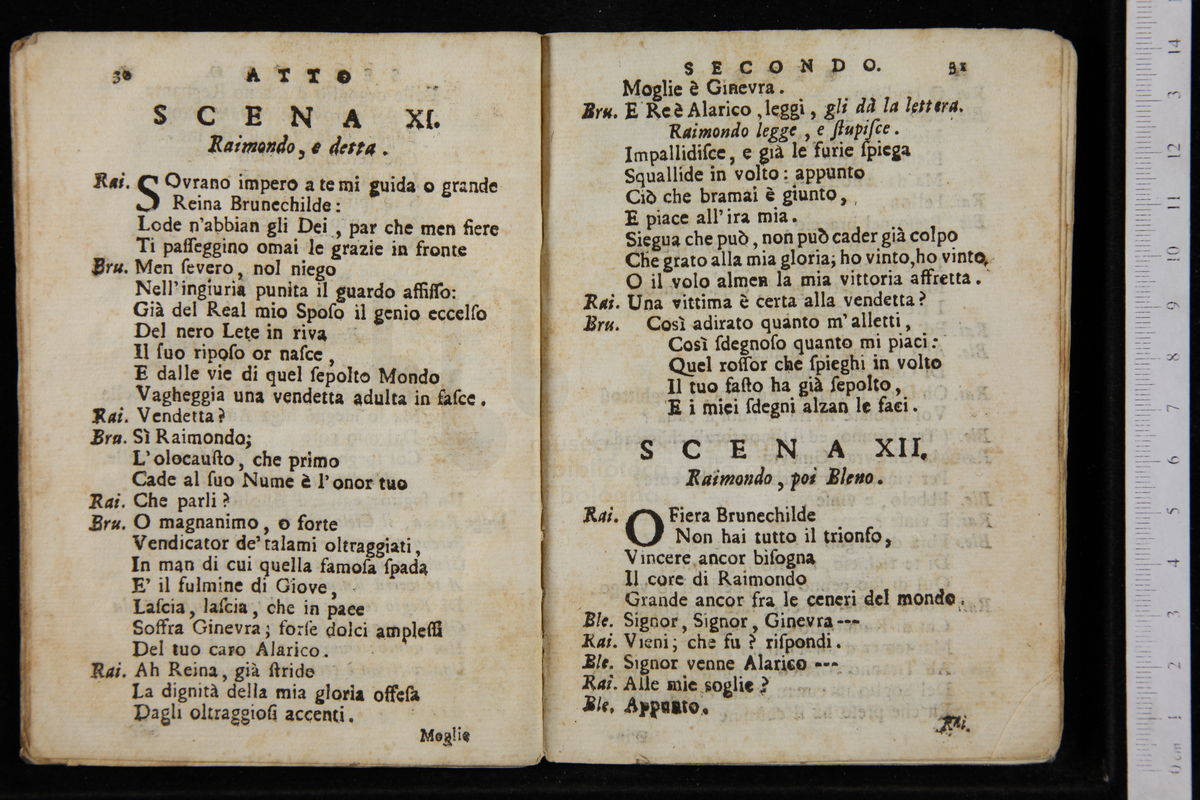 30 ATTO
SCENA XI.
Raimondo, e detta.
Rai. SOvrano impero a te mi guida o grande
Reina Brunechilde:
Lode n'abbian gli Dei, par che men fiere
Ti paſſeggino omai le grazie in fronte
Bru. Men ſevero, nol niego
Nell'ingiuria punita il guardo affiſſo:
Già del Real mio Spoſo il genio eccelſo
Del nero Lete in riva
Il ſuo ripoſo or naſce,
E dalle vie di quel ſepolto Mondo
Vagheggia una vendetta adulta in faſce.
Rai. Vendetta?
Bru. Sì Raimondo;
L'olocauſto, che primo
Cade al ſuo Nume è l'onor tuo
Rai. Che parli?
Bru. O magnanimo, o forte
Vendicator de' talami oltraggiati,
In man di cui quella famoſa ſpada
E' il fulmine di Giove,
Laſcia, laſcia, che in pace
Soffra Ginevra; forſe dolci ampleſſi
Del tuo caro Alarico.
Rai. Ah Reina, già ſtride
La dignità della mia gloria offeſa
Dagli oltraggioſi accenti.
Moglie
SECONDO. 31
Moglie è Ginevra.
Bru. E Re è Alarico, leggi, gli dà la lettera.
Raimondo legge, e ſtupiſce.
Impallidiſce, e già le furie ſpiega
Squallide in volto: appunto
Ciò che bramai è giunto,
E piace all'ira mia.
Siegua che può, non può cader già colpo
Che grato alla mia gloria; ho vinto, ho vinto,
O il volo almen la mia vittoria affretta.
Rai. Una vittima è certa alla vendetta?
Bru. Così adirato quanto m'alletti,
Così ſdegnoſo quanto mi piaci:
Quel roſſor che ſpieghi in volto
Il tuo faſto ha già ſepolto,
E i miei ſdegni alzan le faci.
SCENA XII.
Raimondo, poi Bleno.
Rai. O Fiera Brunechilde
Non hai tutto il trionfo,
Vincere ancor biſogna
Il core di Raimondo
Grande ancor fra le ceneri del mondo.
Ble. Signor, Signor, Ginevra ---
Rai. Vieni; che fu? riſpondi.
Ble. Signor venne Alarico ---
Rai. Alle mie soglie?
Ble. Appunto.
Rai.